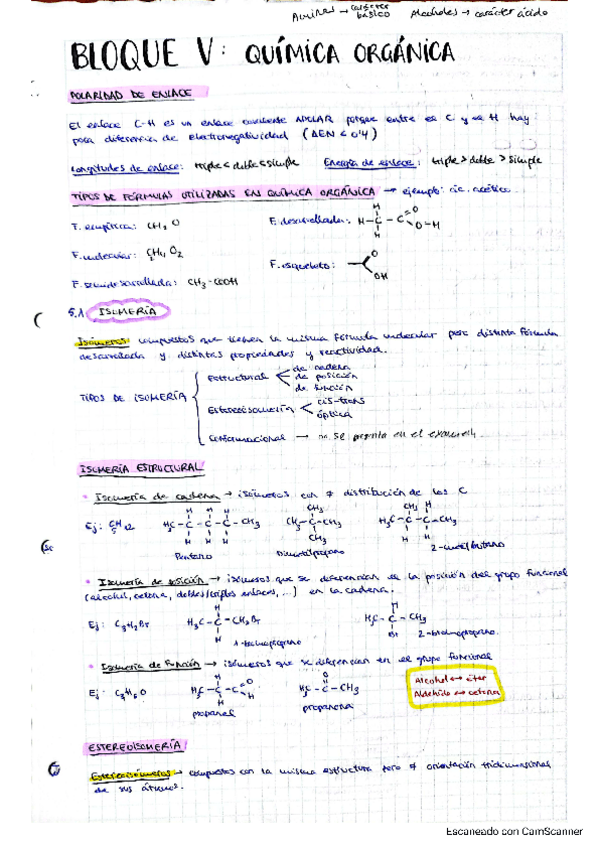 Aminas → carácter básico   Alcoholes → carácter ácido
BLOQUE V: QUÍMICA ORGÁNICA
POLARIDAD DE ENLACE
El enlace C-H es un enlace covalente APOLAR porque entre el C y el H hay
poca diferencia de electronegatividad (ΔEN < 0'4)
Longitudes de enlace: triple < doble < simple   Energía de enlace: triple > doble > simple
TIPOS DE FÓRMULAS UTILIZADAS EN QUÍMICA ORGÁNICA → ejemplo: ác. acético
F. empírica: CH2O   F. desarrollada: H-C-C O O-H H H
F. molecular:   F. esqueleto: O OH
F. semidesarrollada: CH3-COOH
5.1 ISOMERÍA
Isómeros: compuestos que tienen la misma fórmula molecular pero distinta fórmula
desarrollada y distintas propiedades y reactividad.
TIPOS DE ISOMERÍA
Estructural de cadena
de posición
de función
Estereoisomería cis-trans
óptica
Conformacional → no se pregunta en el examen
ISOMERÍA ESTRUCTURAL
• Isomería de cadena → isómeros con ≠ distribución de los C
Ej: C5H12   H3C-C-C-C-CH3   CH3-C-CH3   H3C-C-C-CH3
Pentano   Dimetilpropano   2-metilbutano
• Isomería de posición → isómeros que se diferencian en la posición del grupo funcional
(alcohol, cetona, dobles/triples enlaces, ...) en la cadena.
Ej: C3H7Br   H3C-C-CH2Br   H3C-C-CH3
1-bromopropano   Br   2-bromopropano
• Isomería de Función → isómeros que se diferencian en el grupo funcional
Ej: C3H6O   H3C-C-C O H   H3C-C-CH3 O
propanal   propanona
Alcohol ↔ éter
Aldehído ↔ cetona
ESTEREOISOMERÍA
Estereoisómeros → compuestos con la misma estructura pero ≠ orientación tridimensional
de sus átomos.
Escaneado con CamScanner